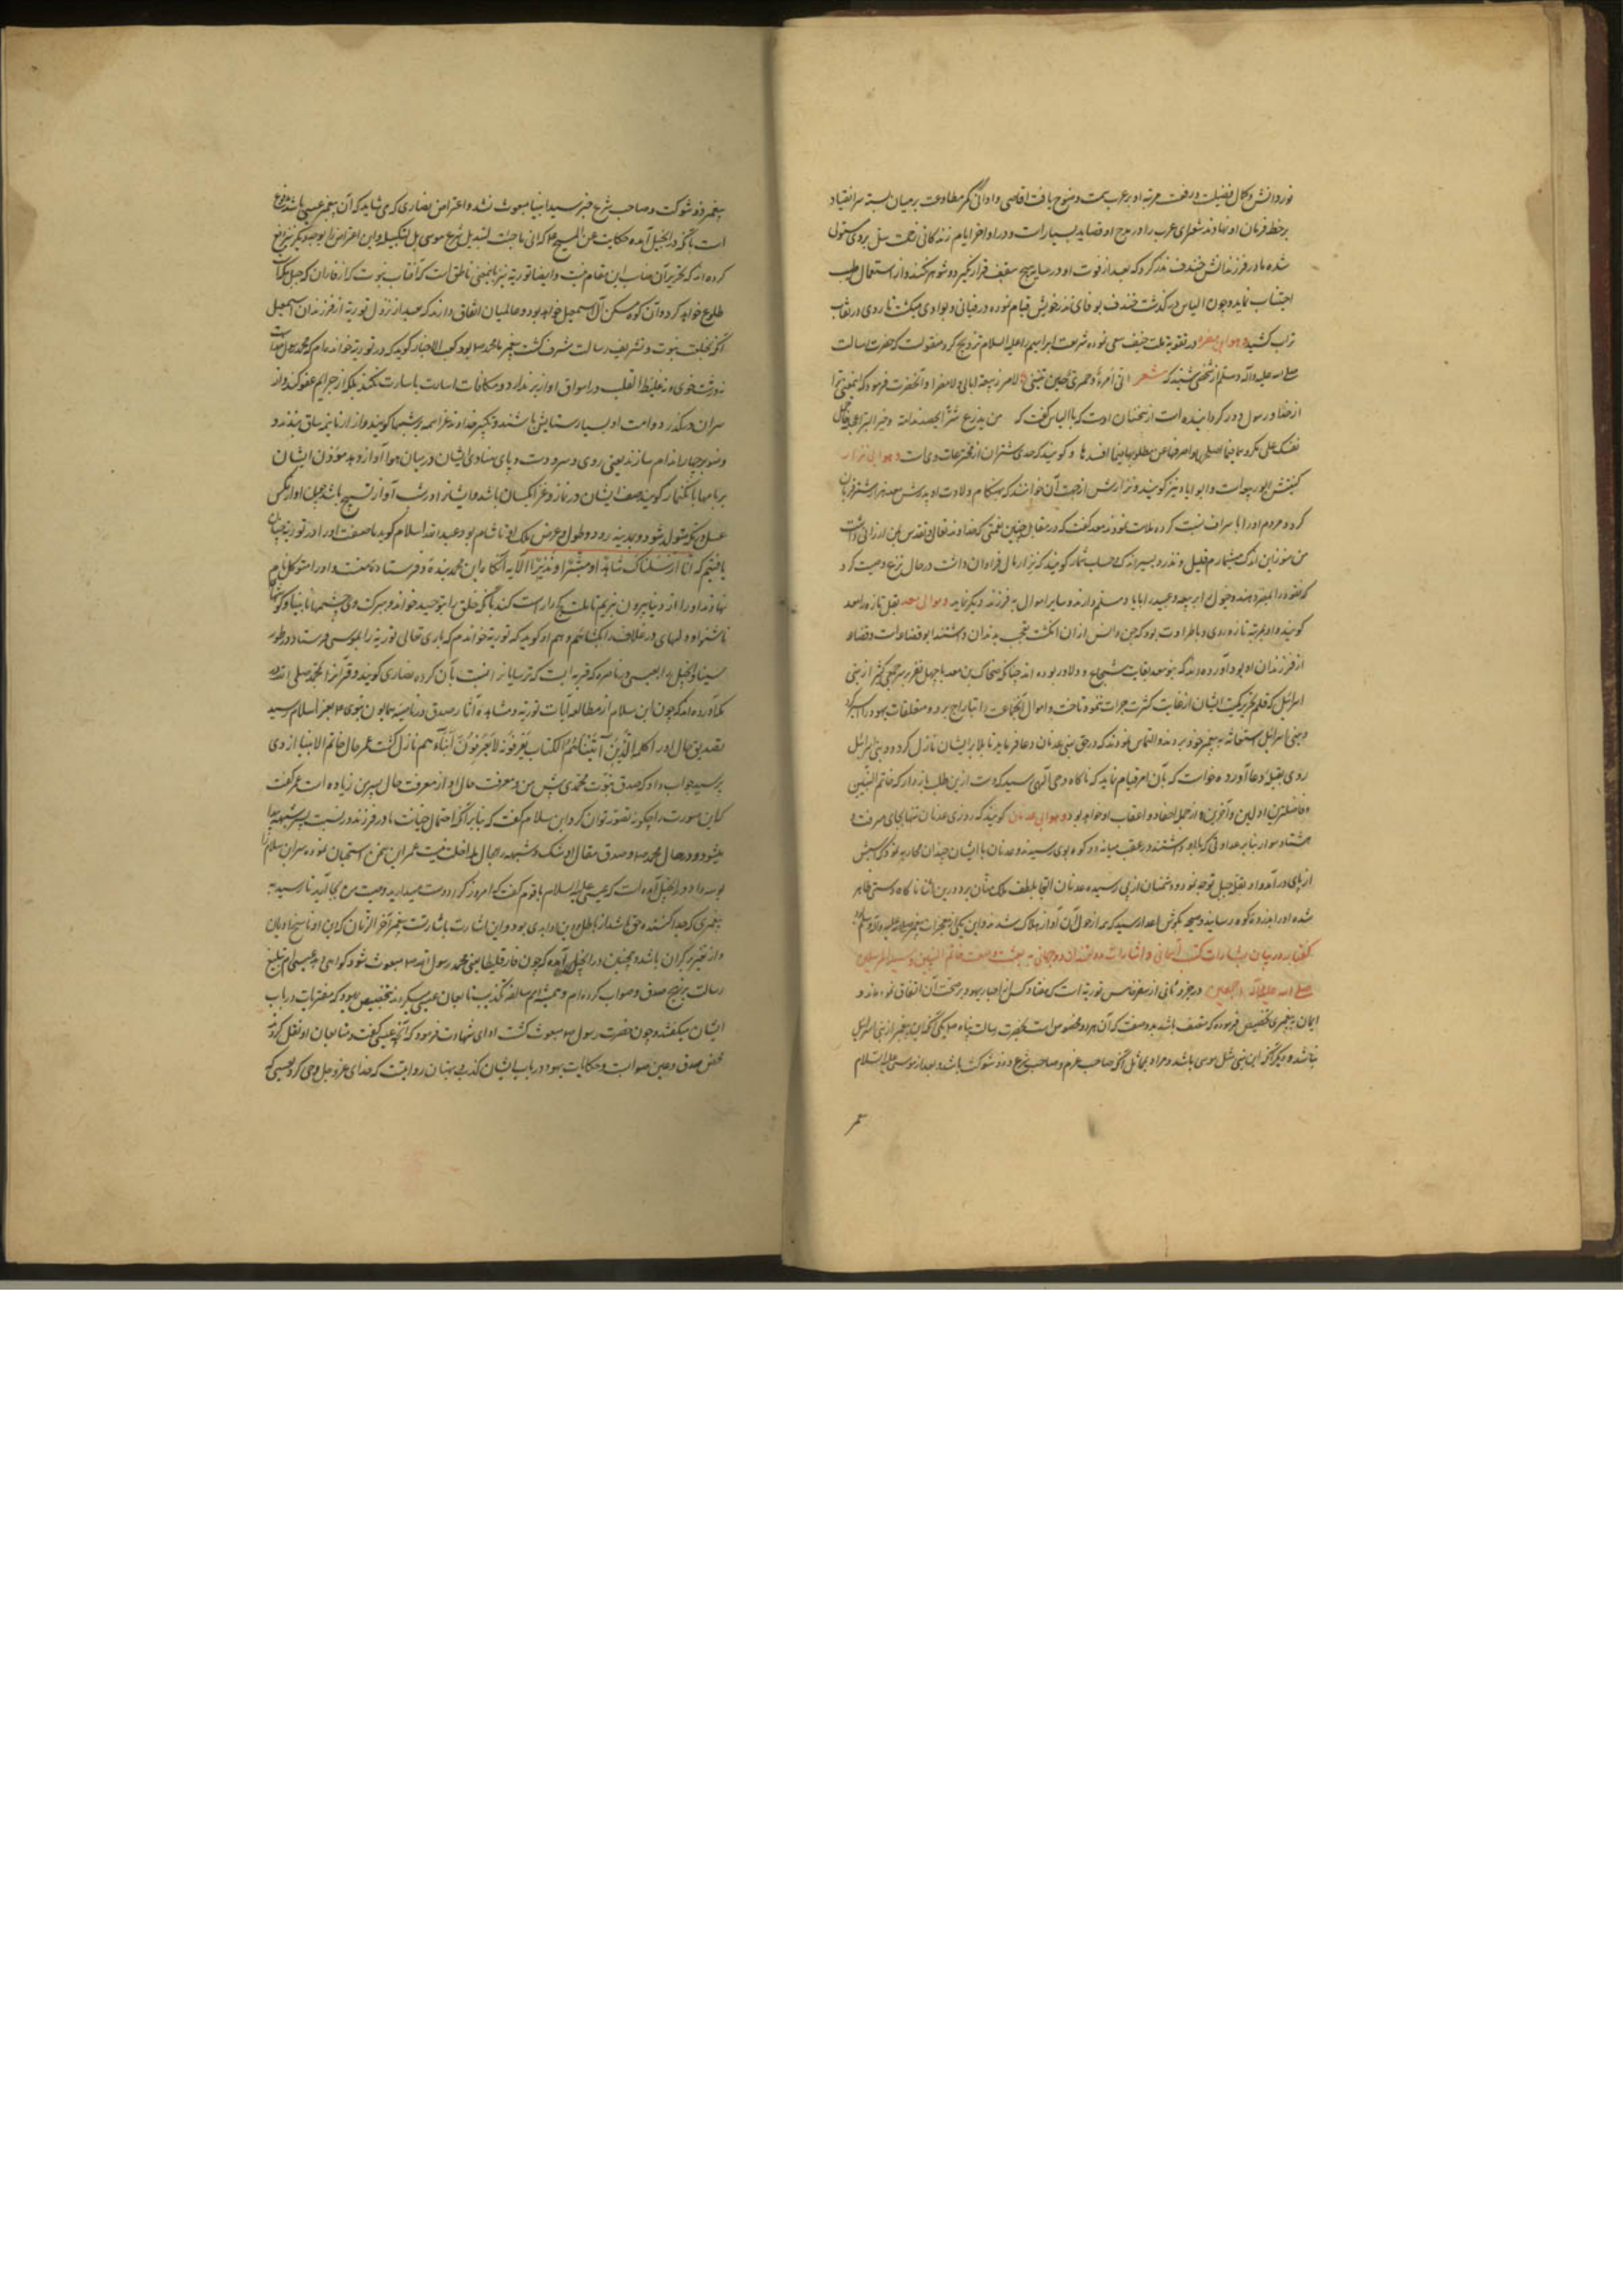 نور دانش و کمال فضیلت و رفعت مرتبه او بر عرب سمت وضوح یافت اقاصی و ادانی کمر مطاوعت بر میان بسته سر انقیاد
بر خط فرمان او نهادند شعرای عرب را در مدح او قصاید بسیار است و در اواخر ایام زندگانی زحمت سل بر وی مستولی
شده مادر فرزندانش خندف نذر کرد که بعد از فوت او در سایه هیچ سقف قرار نگیرد و شوهر نکند و از استعمال طیب
اجتناب نماید و چون الیاس درگذشت خندف بوفای نذر خویش قیام نموده در فیافی و بوادی میگشت تا روی در نقاب
تراب کشید و هو ابن مضر در تقویت ملت حنیف سعی نموده شریعت ابراهیم را علیه السلام ترویج کرد منقولست که حضرت رسالت
صلی الله علیه و آله و سلم از شخصی شنید که شعر انی امرؤ حمیری حین تنسبنی لا من ربیعة آبائی و لا مضر آنحضرت فرمود که
از خدا و رسول دور گردانیده است از سخنان اوست که با الیاس گفت که من یزرع شرا یحصد ندامة و خیر الخیر اعجله
نفسک علی مکروهها فیما اصلحها و اصرفها عن مطلوبها فیما افسدها و گویند که حدی شتران از مخترعات وی است و هو ابن نزار
کنیتش ابو ربیعه است و ابو ایاد نیز گویند و نزارش از جهت آن خوانند که هنگام ولادت او پدرش معد هزار شتر قربان
کرد و مردم او را باسراف نسبت کرده ملامت نمودند معد گفت که در مقابل چنین نعمتی که خداوند تعالی و تقدس بمن ارزانی داشت
من هنوز این اندک میشمارم قلیل و نذر و یسیر اندک حساب شمار گویند که نزار مال فراوان داشت در حال نزع وصیت کرد
گویند و او بمرتبه تازه روی و با طراوت بود که جن و انس از ان انگشت تعجب بدندان
از فرزندان او بود آورده اند که بنو معد بغایت شجاع و دلاور بوده اند چنانکه ضحاک بن معد با چهل نفر بر جمعی کثیر از بنی
اسرائیل که قلم تحریر کمیت ایشان از غایت کثرت جرات ننموده تاخت و اموال آنجماعت را بتاراج برد و متعلقات یهود را اسیر کرد
و بنی اسرائیل استغاثه به پیغمبر خود بردند و التماس نمودند که در حق بنی عدنان دعا فرماید تا بلا بر ایشان نازل گردد و نبی اسرائیل
روی بقبله دعا آورده خواست که بآن امر قیام نماید که ناگاه وحی الهی رسید که دست ازین طلب باز دار که خاتم النبیین
و فاضلترین اولین و آخرین از جمله احفاد و اعقاب او خواهد بود و هو ابن عدنان گویند که روزی عدنان تنها بجای میرفت
هشتاد سوار بنا بر عداوتی که با او داشتند در عقب میانه دو کوه بوی رسیدند و عدنان با ایشان چندان محاربه نمود که اسبش
از پای درآمد و او بقله جبل توجه نموده دشمنان از پی رسیده عدنان التجا بلطف ملک منان برد درین اثنا ناگاه دستی ظاهر
شده او را بذروه کوه رسانید و صیحه بگوش اعدا رسید که همه از هول آن آواز هلاک شدند و این یکی از معجزات پیغمبر صلی الله علیه و آله و سلم
گفتار در بیان بشارات کتب آسمانی و اشارات دانشمندان دو جهانی به بعثت و صفت خاتم النبیین و سید المرسلین
صلی الله علیه و آله اجمعین در جزو ثانی از سفر خامس توریة است که
ایمان به پیغمبری تخصیص فرموده که متصف باشد بدو صفت که آن هر دو مخصوص است بحضرت رسالت پناه ص یکی آنکه این پیغمبر از بنی اسرائیل
نباشد و دیگر آنکه این نبی مثل موسی باشد و مراد بمماثل آنکه صاحب عزم و صاحب شرع و ذو شوکت باشد و بعد از موسی علیه السلام
پیغمبر ذو شوکت و صاحب شرع جز سید انبیا مبعوث نشد و اعتراض نصاری که می شاید که آن پیغمبر عیسی باشد مدفوع
است بآنکه در انجیل آمده حکایت عن المسیح ع که انی ما جئت لتبدیل شرع موسی بل لتکمیله و این اعتراض را بوجوه دیگر نیز دفع
کرده اند که تحریر آن مناسب این مقام نیست و ایضا توریة نیز باین معنی ناطق است که آفتاب نبوت از فاران که جبل مکه است
طلوع خواهد کرد و آن کوه مسکن آل اسمعیل خواهد بود و عالمیان اتفاق دارند که بعد از نزول توریة از فرزندان اسمعیل
آنکه بخلعت نبوت و تشریف رسالت مشرف گشت پیغمبر ما محمد ص بود کعب الاحبار گوید که در توریة خوانده ام که محمد رسول خداست
نه درشت خوی و نه غلیظ القلب و در اسواق آواز بر ندارد و مکافات اسائت باسائت نکند بلکه از جرایم عفو کند و از
سر آن درگذرد و امت او بسیار ستایش باشند و تکبیر خداوند عز اسمه بر پشتها گویند و ازار تا نیم ساق بندند و
وضو بر چهار اندام سازند یعنی روی و سر و دست و پای منادی ایشان در میان هوا آواز دهد مؤذن ایشان
بر بامها بانگ نماز گوید صف ایشان در نماز و غزا یکسان باشد و ایشانرا در شب آواز تسبیح باشد چون آواز مگس
عسل و بمکه متولد شود و بمدینه رود و طول و عرض ملک او تا شام بود عبد الله سلام گوید ما صفت او را در توریة چنان
یافتیم که انا ارسلناک شاهدا و مبشرا و نذیرا الآیه آنگاه این محمد بنده و فرستاده منست و او را متوکل نام
نهادند او را از دنیا بیرون نبریم تا ملت کج را راست کند تا آنکه خلق را بتوحید خواند
ناشنوا و دلهای در غلاف را بگشائیم و هم او گوید که توریة خواندم که باری تعالی توریة را بموسی فرستاد در طور
سینا و انجیل را بعیسی در ناصره که قریه ایست که ترسایانرا نسبت بآن کرده نصاری گویند و قرآنرا بمحمد صلی الله
آورده اند که چون ابن سلام از مطالعه آیات توریة و مشاهده آثار صدق در ناصیه همایون نبوی ص بعز اسلام رسید
بتصدیق حال او را کلمه الذین آتیناهم الکتاب یعرفونه کما یعرفون ابناءهم نازل گشت عمر حال خاتم الانبیا از وی
پرسید جواب داد که صدق نبوت محمدی پیش من و معرفت حال او از معرفت حال پسر من زیاده است عمر گفت
که این صورت را چگونه تصور توان کرد ابن سلام گفت که بنابر آنکه احتمال خیانت مادر فرزند در نسبت پسر شبهه پیدا
میشود و در حال محمد ص و صدق مقال او شک و شبهه را مجال مداخلت نیست عمر این سخن استحسان نموده سر ابن سلام را
بوسه داد و در انجیل آمده است که عیسی علیه السلام با قوم گفت که امروز که مرا دوست میدارید وصیت من بجا آرید تا رسید به
و از تغییر بر کران باشد و همچنین در انجیل آمده که چون فارقلیطا یعنی محمد رسول الله ص مبعوث شود گواهی دهد عیسی ام تبلیغ
رسالت بر نهج صدق و صواب کرده ام و همیشه امم سابقه تکذیب تابعان عیسی میکردند بتخصیص یهود که مفتریات در باب
ایشان میگفتند و چون حضرت رسول ص مبعوث گشت ادای شهادت فرمود که آنچه عیسی گفت و متابعان او نقل کردند
محض صدق و عین صوابست و حکایات یهود در باب ایشان کذب و بهتان روایتست که خدای عز و جل وحی کرد بعیسی که